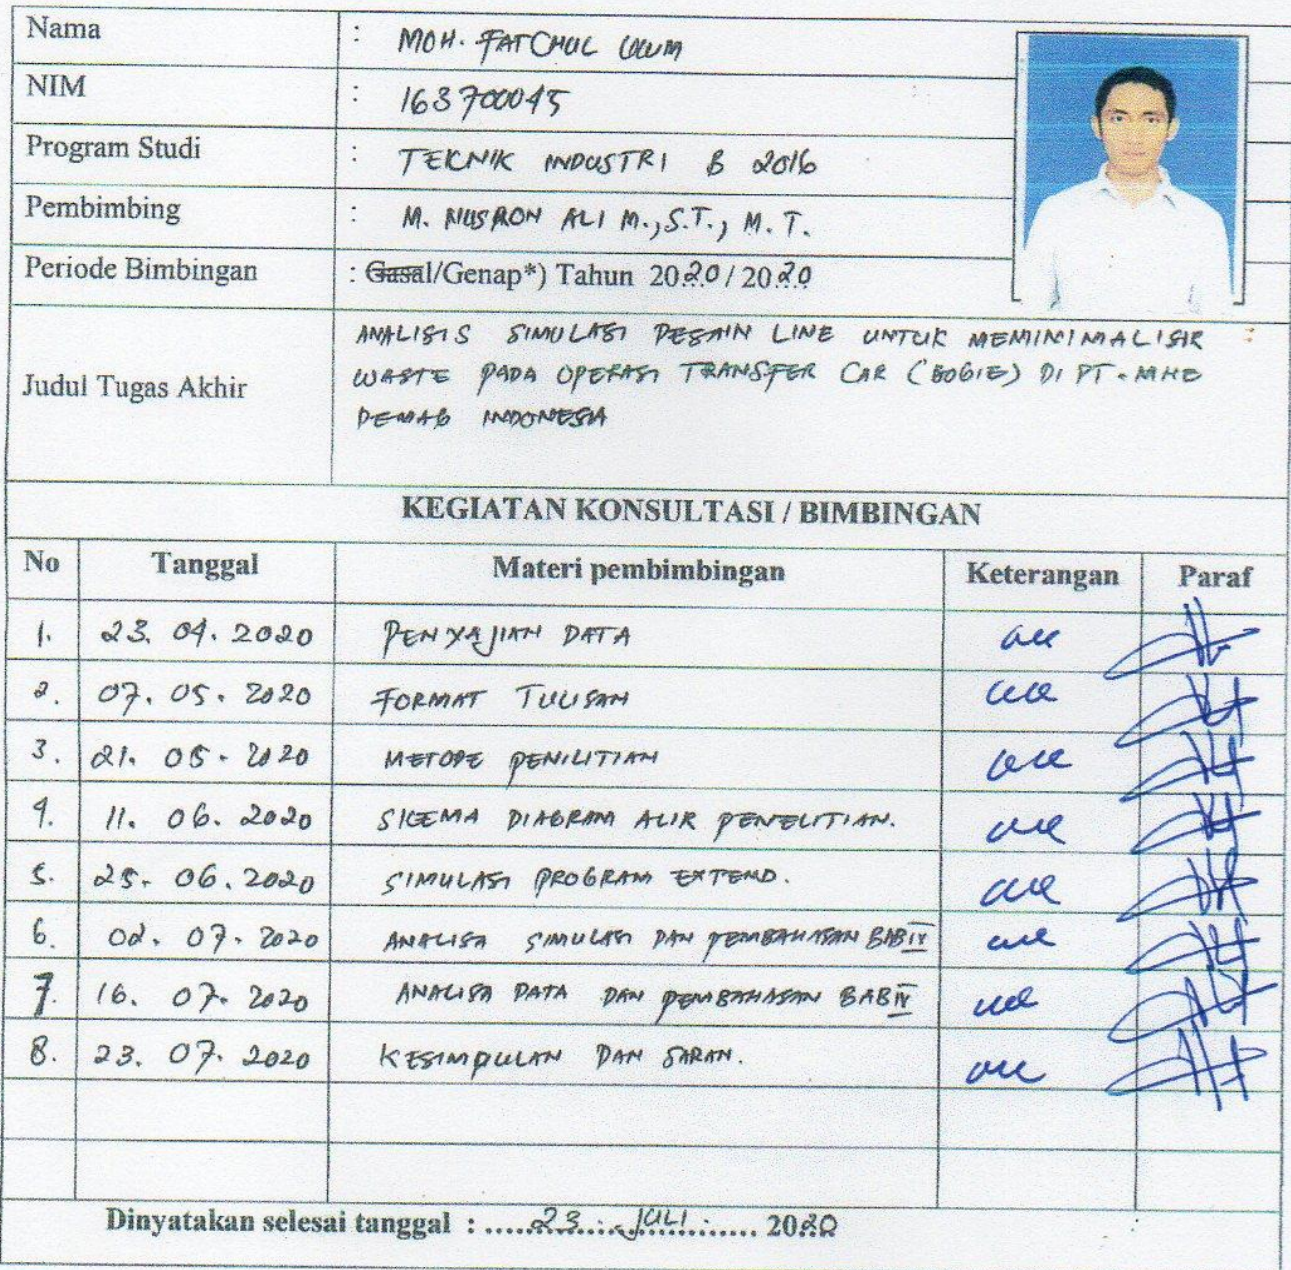 Nama : MOH. FATCHUL ULUM
NIM : 163700045
Program Studi : TEKNIK INDUSTRI B 2016
Pembimbing : M. NUSRON ALI M., S.T., M.T.
Periode Bimbingan : Gasal/Genap*) Tahun 2020 / 2020
Judul Tugas Akhir
ANALISIS SIMULASI DESAIN LINE UNTUK MEMINIMALISIR :
WASTE PADA OPERASI TRANSFER CAR (BOGIE) DI PT. MHE
DEMAG INDONESIA
KEGIATAN KONSULTASI / BIMBINGAN
No Tanggal Materi pembimbingan Keterangan Paraf
1. 23. 04. 2020 PENYAJIAN DATA
2. 07. 05. 2020 FORMAT TULISAN
3. 21. 05. 2020 METODE PENILITIAN
4. 11. 06. 2020 SKEMA DIAGRAM ALIR PENELITIAN.
5. 25. 06. 2020 SIMULASI PROGRAM EXTEND.
6. 02. 07. 2020 ANALISA SIMULASI DAN PEMBAHASAN BAB IV
7. 16. 07. 2020 ANALISA DATA DAN PEMBAHASAN BAB IV
8. 23. 07. 2020 KESIMPULAN DAN SARAN.
Dinyatakan selesai tanggal : ..... 23 . JULI ...... 2020